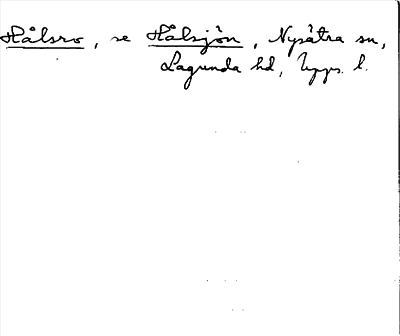 Hålsro, se Hålsjön, Nysätra sn,
Lagunda hd, Upps. l.